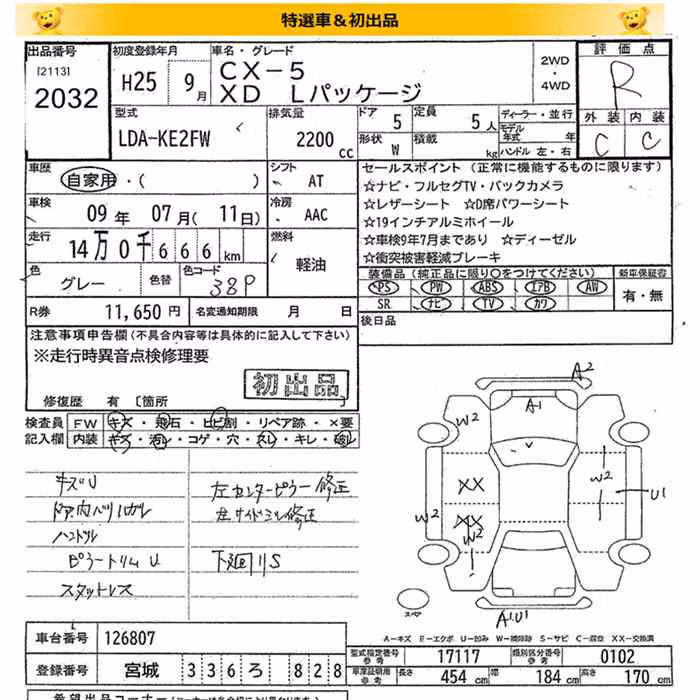 特選車&初出品
出品番号 初度登録年月 車名・グレード 評価点
[2113]
2032
H25 9月 CX-5 2WD・4WD R
XD Lパッケージ
型式 排気量 ドア 5 定員 5人 ディーラー・並行 外装 内装
LDA-KE2FW 2200cc 形状 W 積載 kg モデル年式 年 C C
ハンドル 左・右
車歴 シフト セールスポイント (正常に機能するものに限ります)
自家用・( ) AT ☆ナビ・フルセグTV・バックカメラ
☆レザーシート ☆D席パワーシート
車検 09年 07月(11日) 冷房 AAC ☆19インチアルミホイール
☆車検9年7月まであり ☆ディーゼル
走行 14万0千666km 燃料 軽油 ☆衝突被害軽減ブレーキ
色 グレー 色替 色コード 38P 装備品(純正品に限り○をつけてください) 新車保証書
PS PW ABS エアB AW 有・無
SR ナビ TV カワ
R券 11,650円 名変通知期限 月 日 後日品
注意事項申告欄(不具合内容等は具体的に記入して下さい)
※走行時異音点検修理要
初出品
修復歴 有 [箇所 ]
検査員 FW キズ・飛石・ヒビ割・リペア跡・×要
記入欄 内装 キズ・汚レ・コゲ・穴・スレ・キレ・破レ
キズU 左センターピラー修正
内ベリハガレ 左サイドシル修正
ハンドル
ピラートリムU 下廻りS
スタットレス
A2
A1
W2
W2
XX
U1
W2
XX
W2
A1U1
スペア
A-キズ E-エクボ U-凹み W-補修跡 S-サビ C-腐食 XX-交換済
車台番号 126807
型式指定番号 参考 17117 類別区分番号 参考 0102
登録番号 宮城 336ろ 828
車庫証明用 参考 長さ 454cm 幅 184cm 高さ 170cm
希望出品コーナー